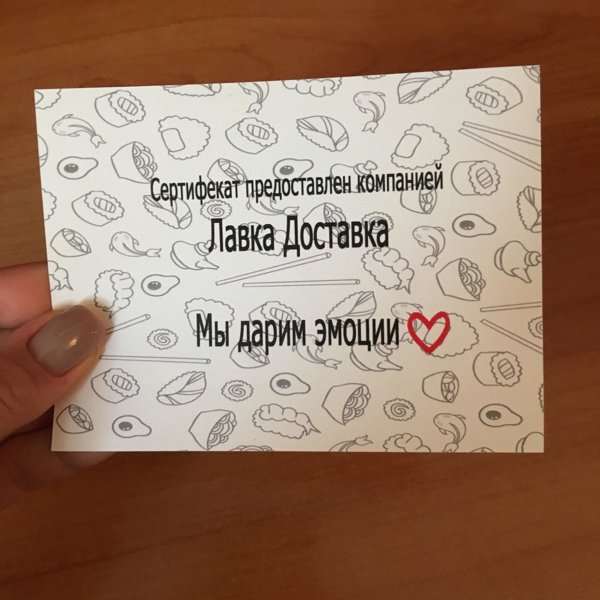 Сертифекат предоставлен компанией
Лавка Доставка
Мы дарим эмоции